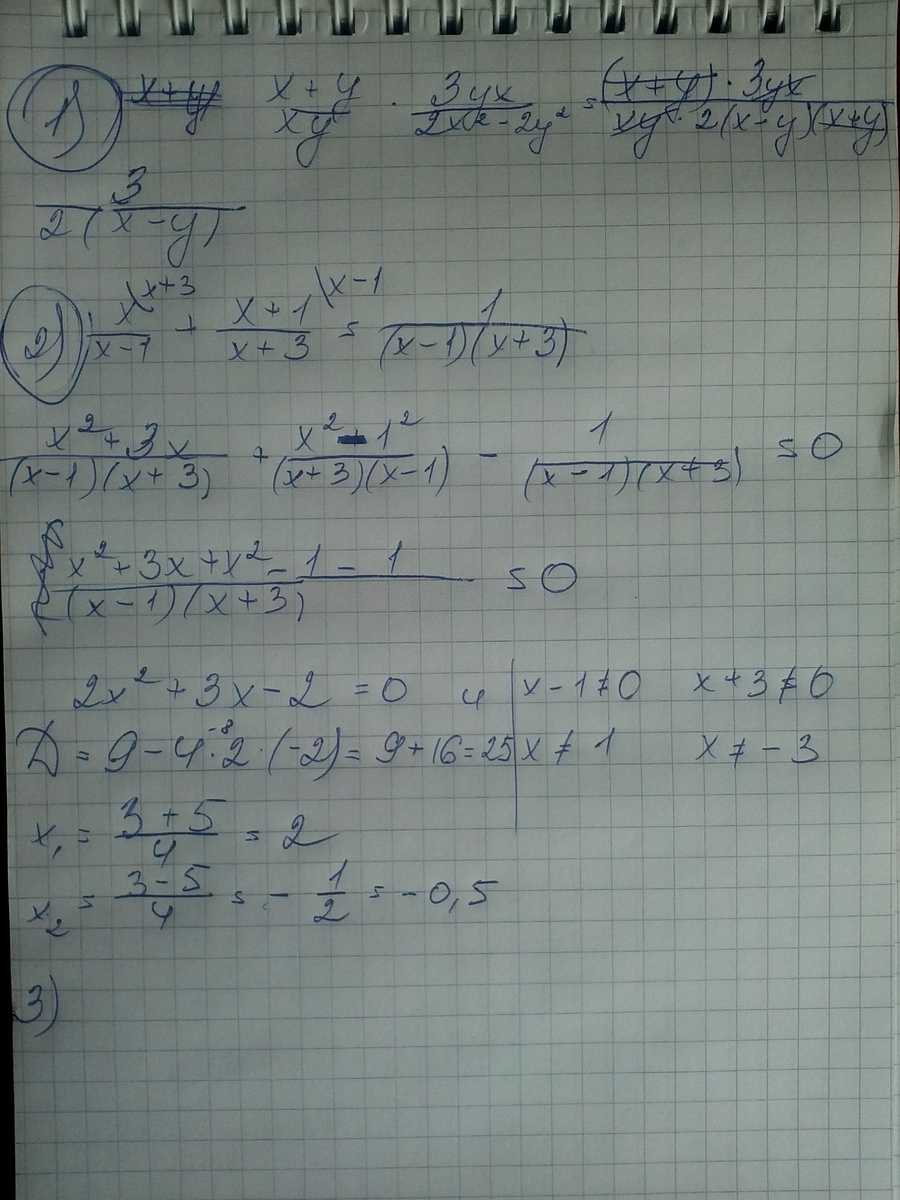 1) x+y/xy · 3yx/2x²-2y² = (x+y)·3yx/xy·2(x-y)(x+y)
3/2(x-y)
2) x\x+3/x-1 + x+1\x-1/x+3 = 1/(x-1)(x+3)
x²+3x/(x-1)(x+3) + x²-1²/(x+3)(x-1) - 1/(x-1)(x+3) = 0
x²+3x+x²-1-1/(x-1)(x+3) = 0
2x²+3x-2=0 и | x-1≠0 x+3≠0
D=9-4·2·(-2)=9+16=25 | x≠1 x≠-3
-8
x₁ = 3+5/4 = 2
x₂ = 3-5/4 = -1/2 = -0,5
3)